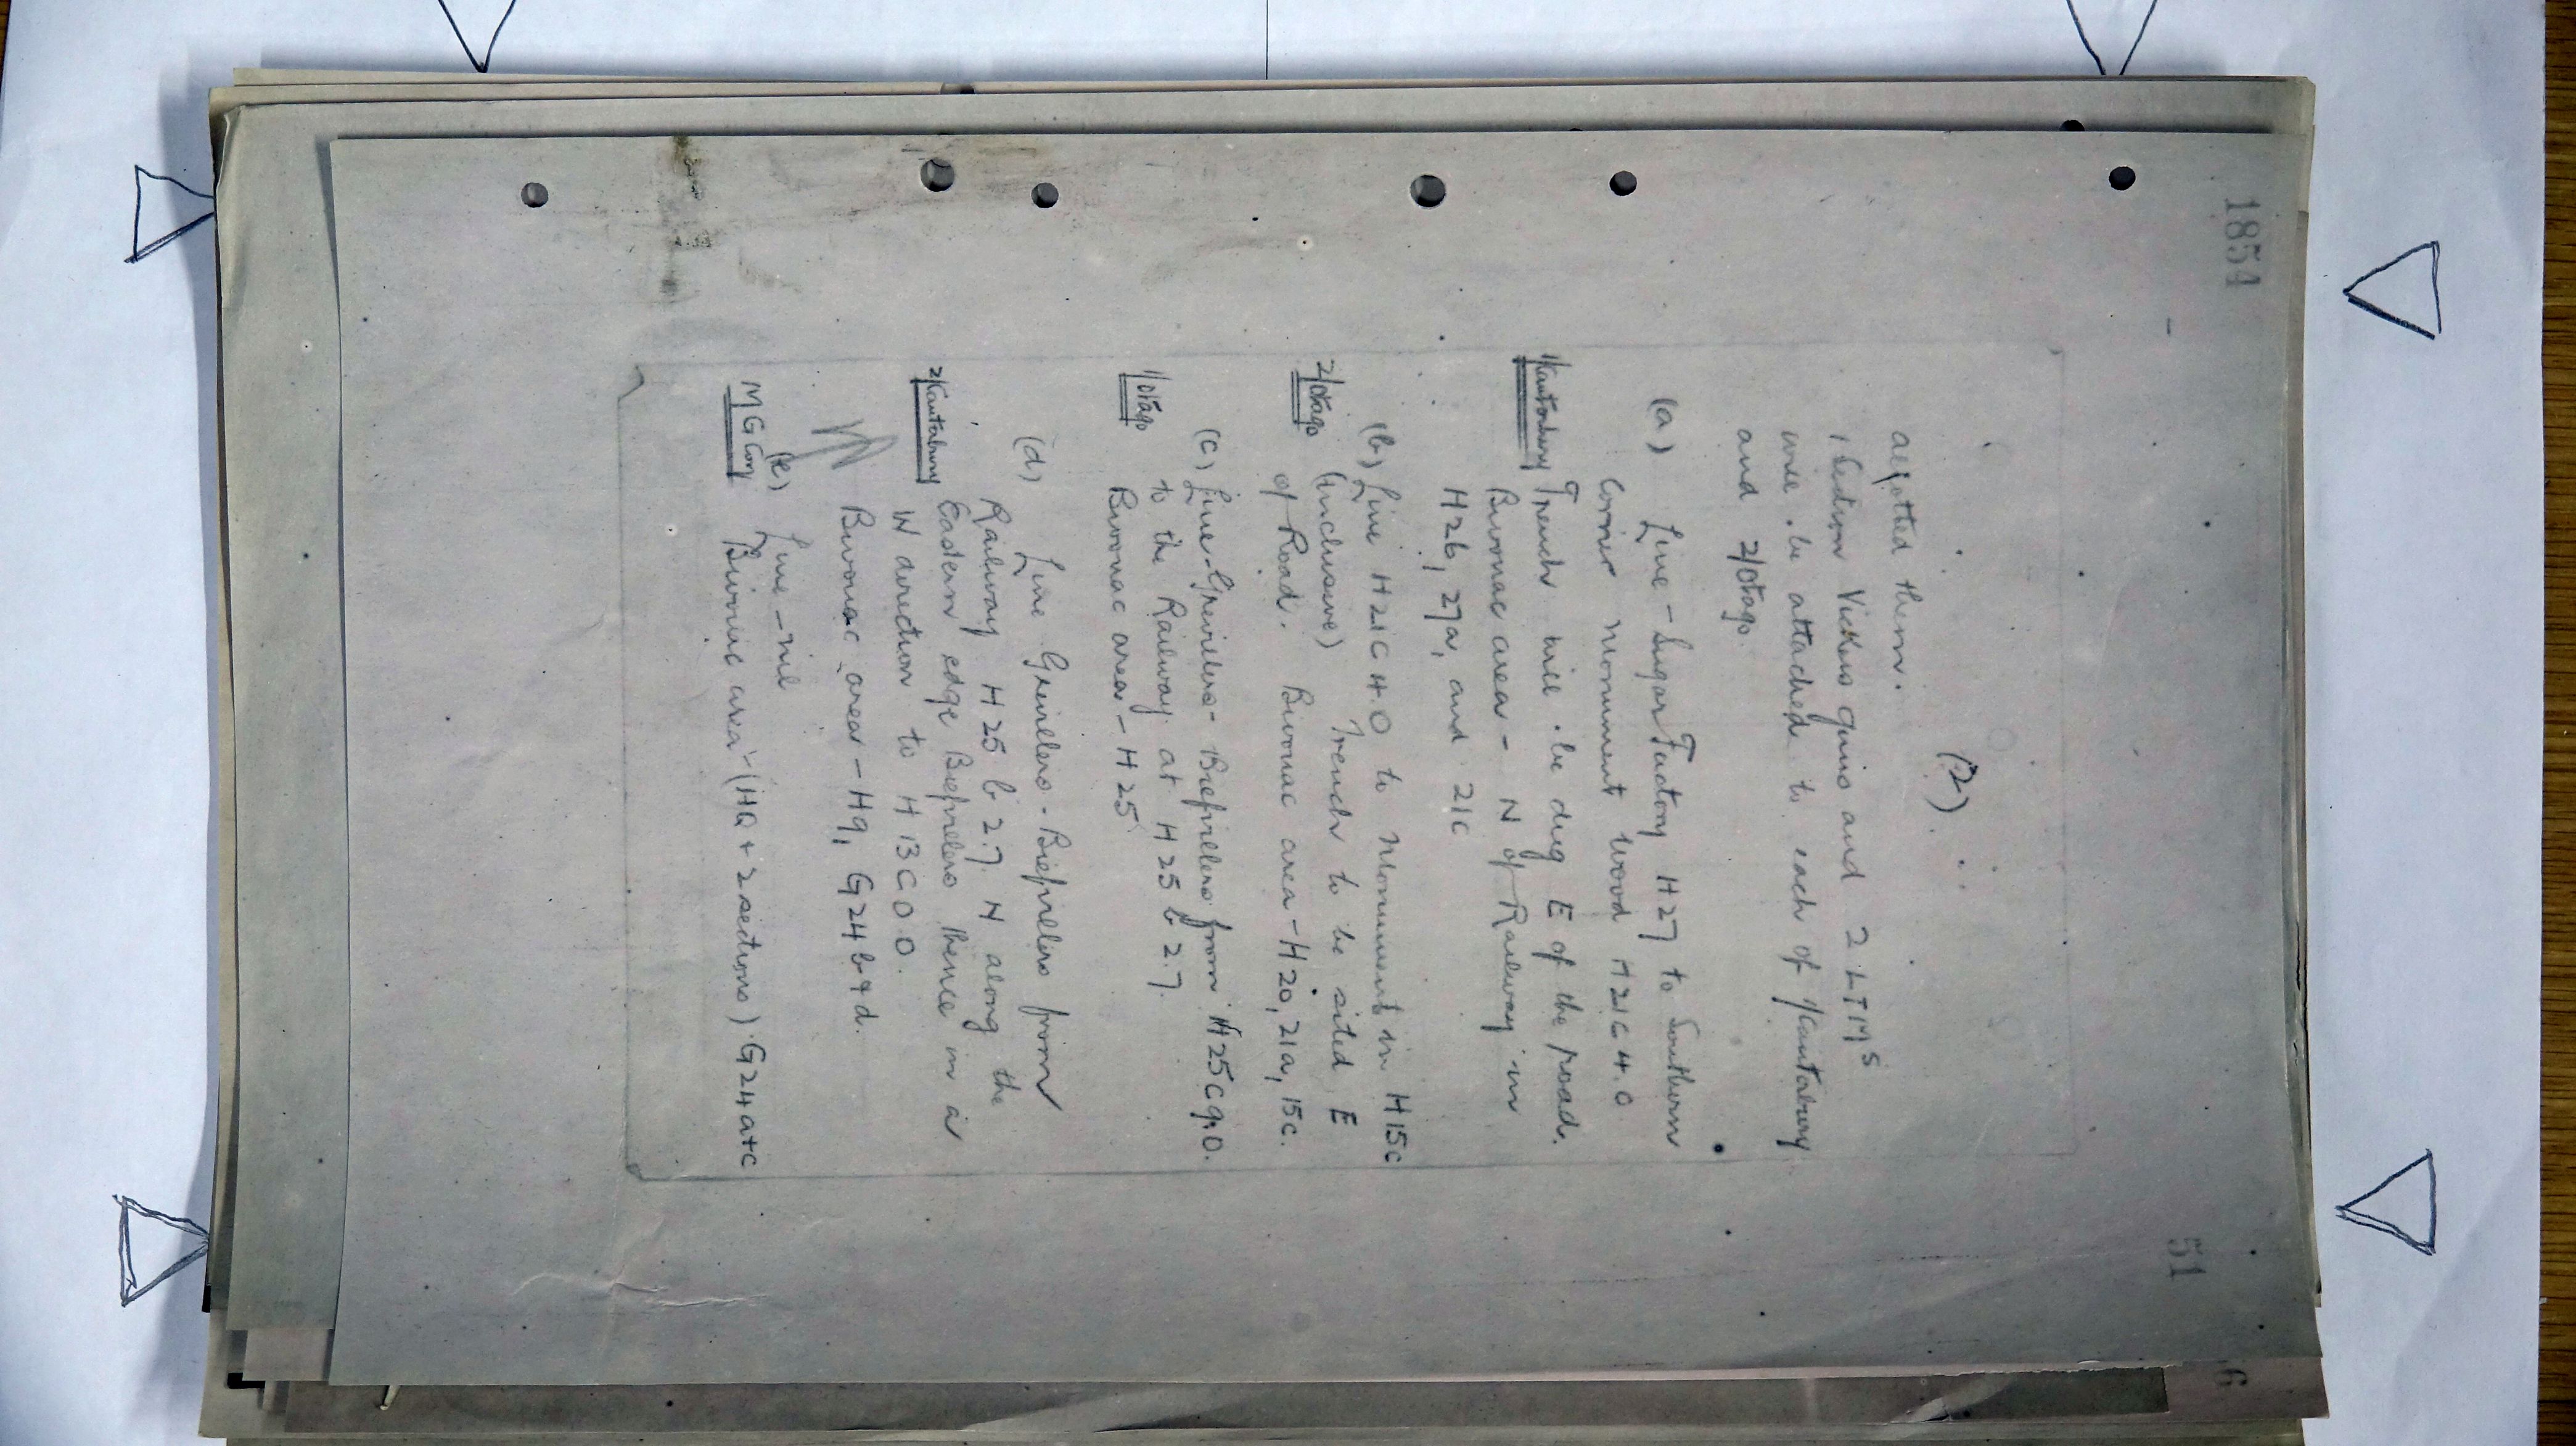 1854
51
(2).
allotted them.
1 Section Vickers guns and 2 LTMs
will be attached to each of 1/Cantabury
and 2/Otago.
(a) Line - Sugar Factory H27 to Southern
Corner Monument Wood H21C4.0
1/Cantabury Trench will be dug E of the road.
Bivouac area - N of Railway in
H26, 27a, and 21C
(b) Line H21C4.0 to Monument in H15c
2/Otago (inclusive) Trench to be sited E
of Road. Bivouac area - H20, 21a, 15c.
(c) Line - Grevillers - Biefvillers from H25C9.0.
to the Railway at H25b2.7.
1/Otago Bivouac area - H25
(d) Line Grevillers - Biefvillers from
Railway H25b2.7. N along the
Eastern edge Biefvillers thence in a
2/Cantabury W direction to H13C00.
Bivouac area - H9, G24b+d.
(e) Line - nil
MG Coy Bivouac area - (HQ + 2 sections) G24a+c
6